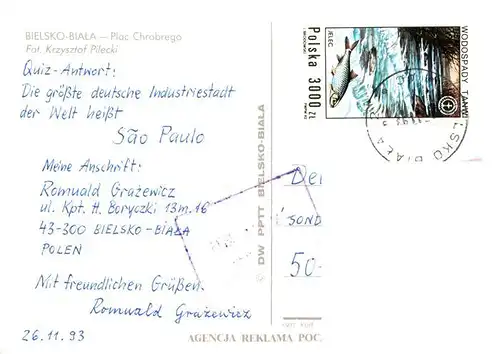 BIELSKO-BIAŁA — Plac Chrobrego
Fot. Krzysztof Pilecki
Quiz-Antwort:
Die größte deutsche Industriestadt
der Welt heißt
São Paulo
Meine Anschrift:
Romuald Grażewicz
ul. Kpt. H. Boryczki 13m.16
43-300 BIELSKO-BIAŁA
POLEN
Mit freundlichen Grüßen.
Romuald Grażewicz
26.11.93
© DW PPTT BIELSKO-BIAŁA
AGENCJA REKLAMA POC
JELEC
Polska 3000 zŁ
WODOSPADY TANWI
LSKO BIAŁA
De
SOND
50-